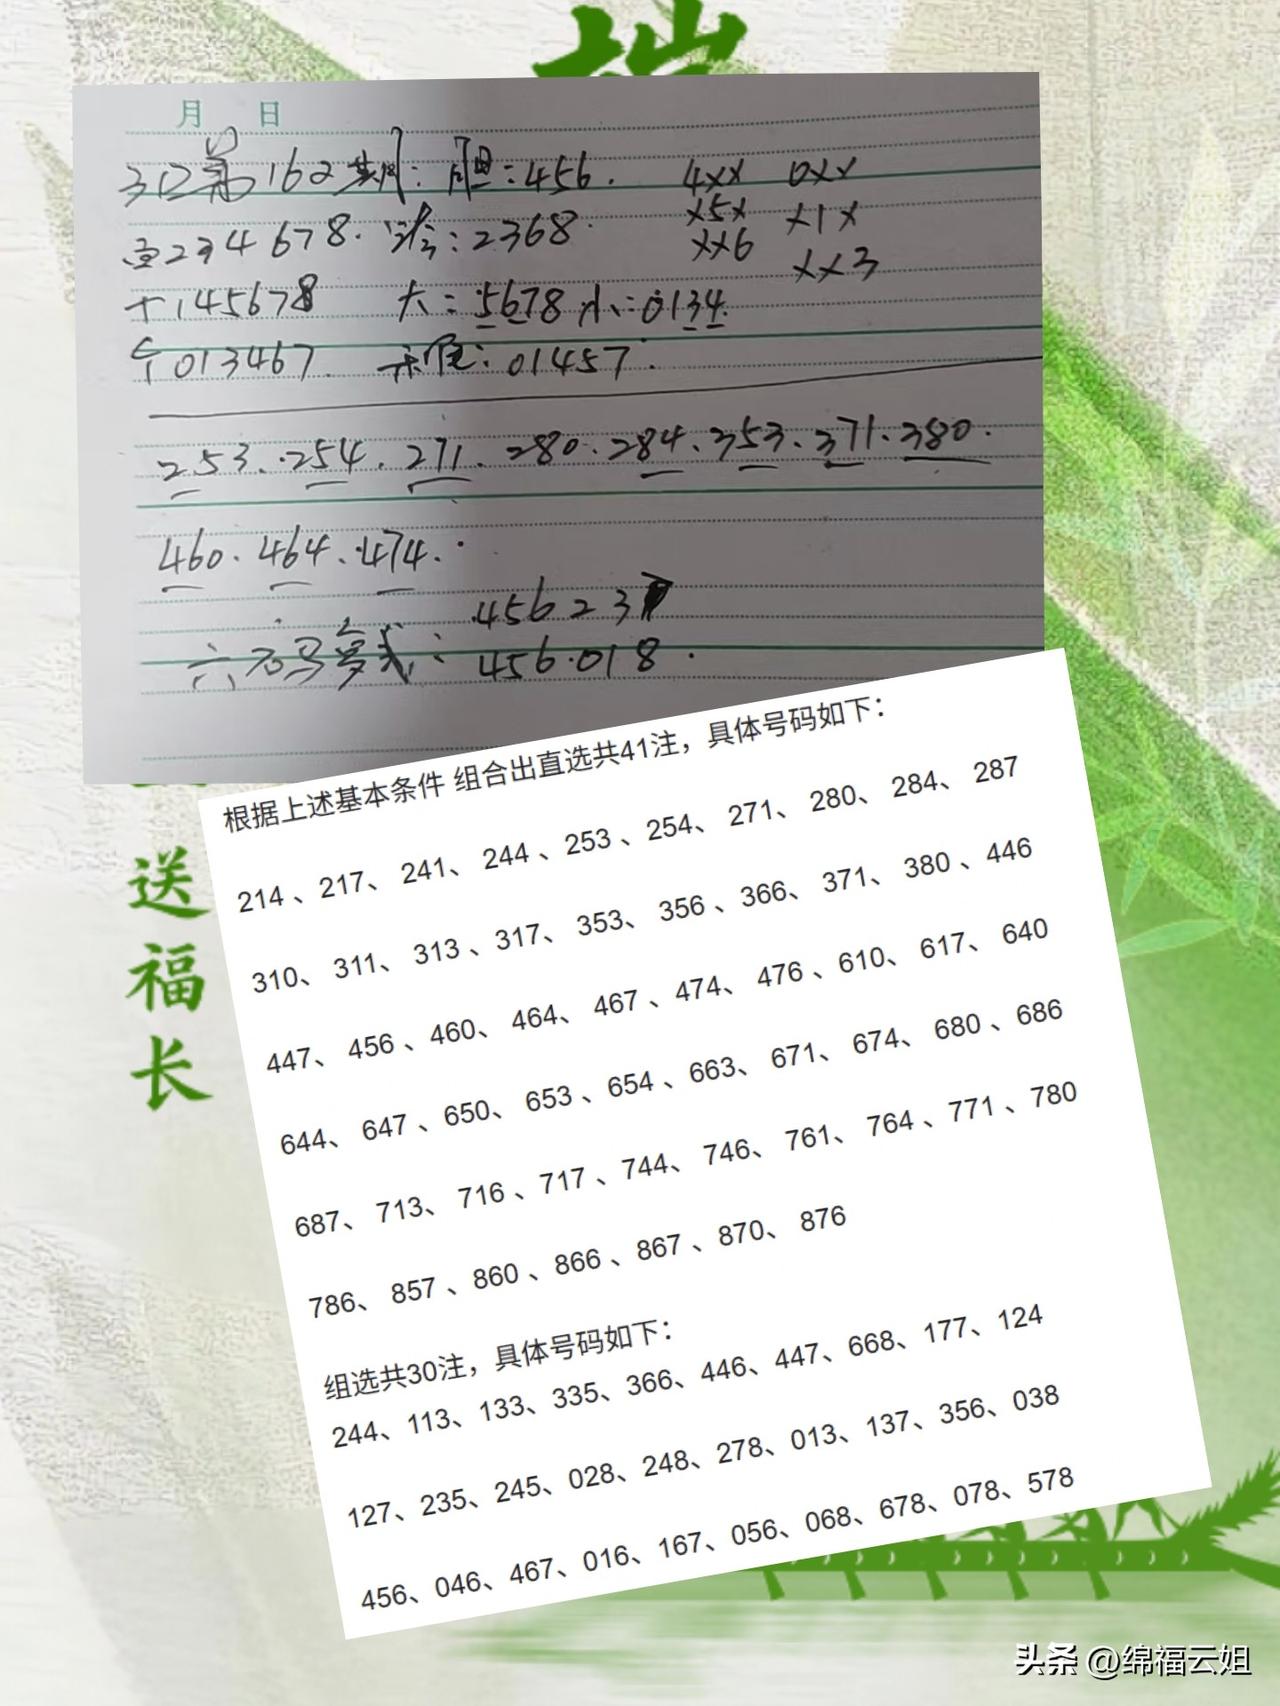 月 日
3D第162期：胆：456. 4XX 0XX
百234678. 沴：2368. X5X X1X
XX6 XX3
十145678 大：5678 小：0134.
个013467. 和尾：01457.
253. 254. 271. 280. 284. 353. 371. 380.
460. 464. 474.
456237
六石马复式：456.018.
根据上述基本条件 组合出直选共41注，具体号码如下：
214 、217、 241、 244 、253 、254、 271、 280、 284、 287
310、 311、 313 、317、 353、 356 、366、 371、 380 、446
447、 456 、460、 464、 467 、474、 476 、610、 617、 640
644、 647 、650、 653 、654 、663、 671、 674、 680 、686
687、 713、 716 、717 、744、 746、 761、 764 、771 、780
786、 857 、860 、866 、867 、870、 876
组选共30注，具体号码如下：
244、113、133、335、366、446、447、668、177、124
127、235、245、028、248、278、013、137、356、038
456、046、467、016、167、056、068、678、078、578
送福长
头条 @绵福云姐